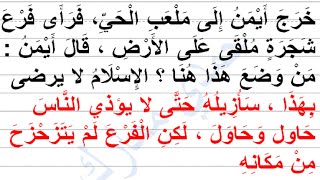 خَرَجَ أَيْمَنُ إِلَى مَلْعَبِ الْحَيِّ، فَرَأَى فَرْعَ
شَجَرَةٍ مُلْقَى عَلَى الأَرْضِ ، قَالَ أَيْمَنُ :
مَنْ وَضَعَ هَذَا هُنَا ؟ الإِسْلَامُ لا يرضى
بِهَذَا ، سَأُزِيلُه حَتَّى لا يؤذي النَّاسَ
حَاول وَحَاوَلَ ، لَكِنِ الْفَرْعَ لَمْ يَتَزَحْزَحَ
مِنْ مَكَانِهِ